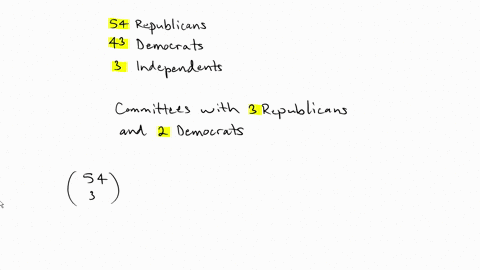 54 Republicans
43 Democrats
3 Independents
Committees with 3 Republicans
and 2 Democrats
(54
3)